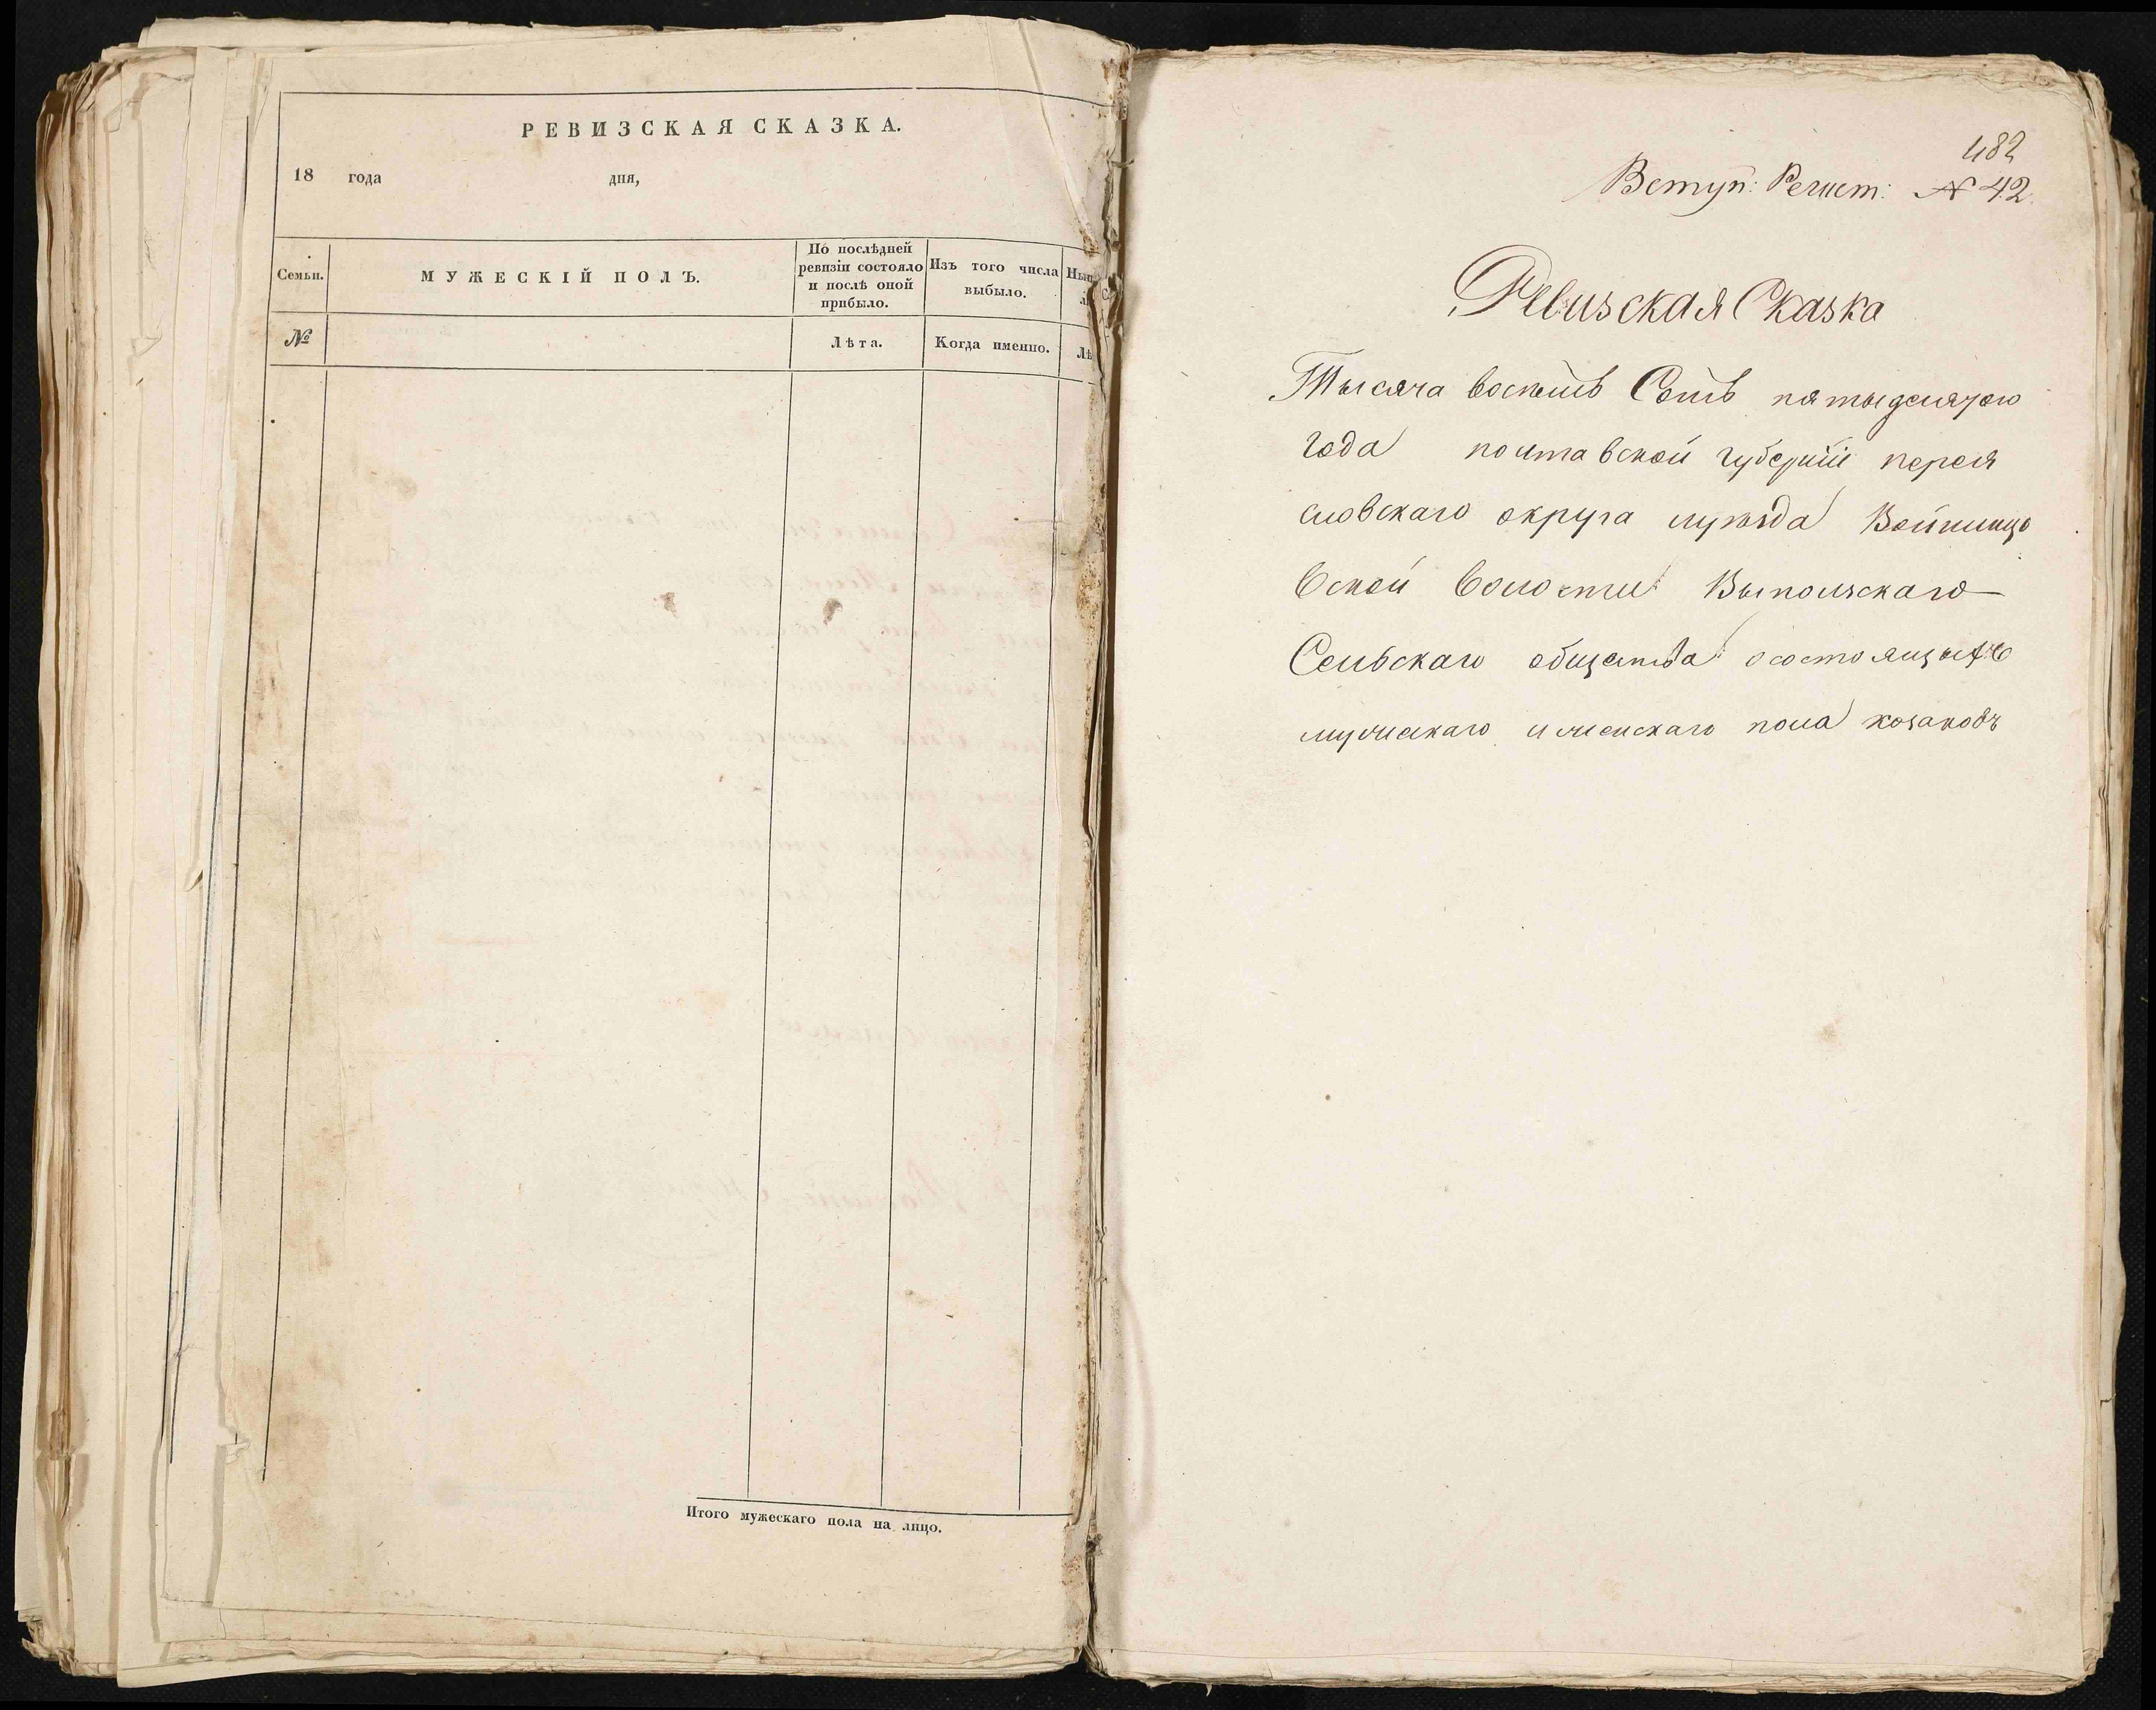 РЕВИЗСКАЯ СКАЗКА.
18 года дня,
Семьи.
МУЖЕСКІЙ ПОЛЪ.
По послѣдней
ревизіи состояло
и послѣ оной
прибыло.
Изъ того числа
выбыло.
№
Лѣта.
Когда именно.
Итого мужескаго пола на лицо.
482
Вступ: Регист: № 42.
Ревизская Сказка
Тысяча восемь Сотъ пятыдесятого
года полтавской губерніи перея
словскаго округа уѣзда Войтовцо
вской волости Выпольскаго
Сельскаго общества о состоящихъ
мужескаго и женскаго пола козаковъ